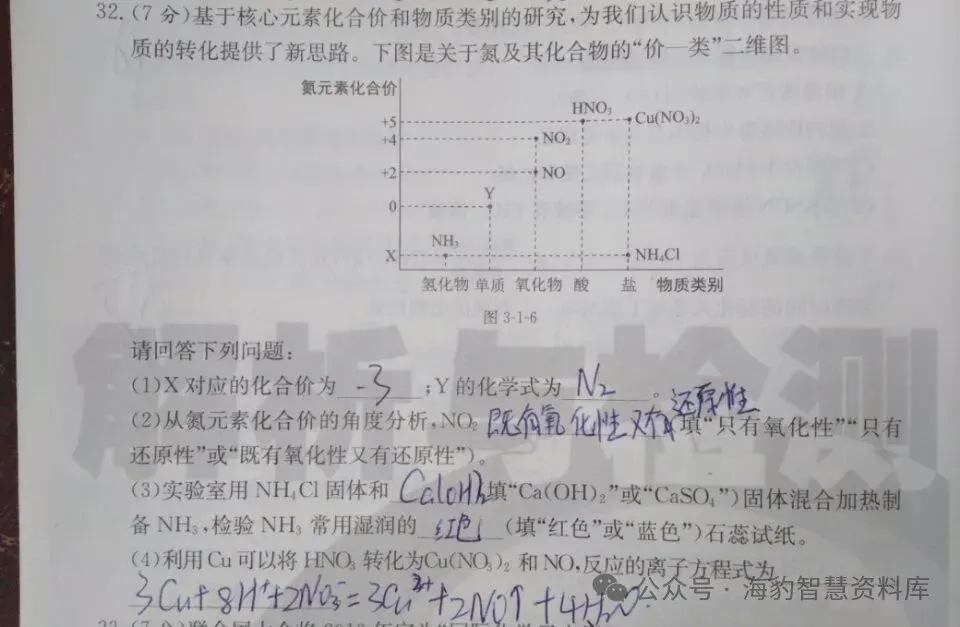 32.(7分)基于核心元素化合价和物质类别的研究,为我们认识物质的性质和实现物
质的转化提供了新思路。下图是关于氮及其化合物的“价—类”二维图。
氮元素化合价
HNO₃
+5
Cu(NO₃)₂
+4
NO₂
+2
NO
Y
0
NH₃
X
NH₄Cl
氢化物 单质 氧化物 酸 盐 物质类别
图 3-1-6
请回答下列问题:
(1)X对应的化合价为 -3 ;Y的化学式为 N₂ 。
(2)从氮元素化合价的角度分析,NO₂ 既有氧化性又有还原性 填“只有氧化性”“只有
还原性”或“既有氧化性又有还原性”)。
(3)实验室用NH₄Cl固体和 Ca(OH)₂ 填“Ca(OH)₂”或“CaSO₄”)固体混合加热制
备NH₃,检验NH₃常用湿润的 红色 (填“红色”或“蓝色”)石蕊试纸。
(4)利用Cu可以将HNO₃转化为Cu(NO₃)₂和NO,反应的离子方程式为
3Cu+8H⁺+2NO₃⁻=3Cu²⁺+2NO↑+4H₂O.
公众号·海豹智慧资料库
解析与检测